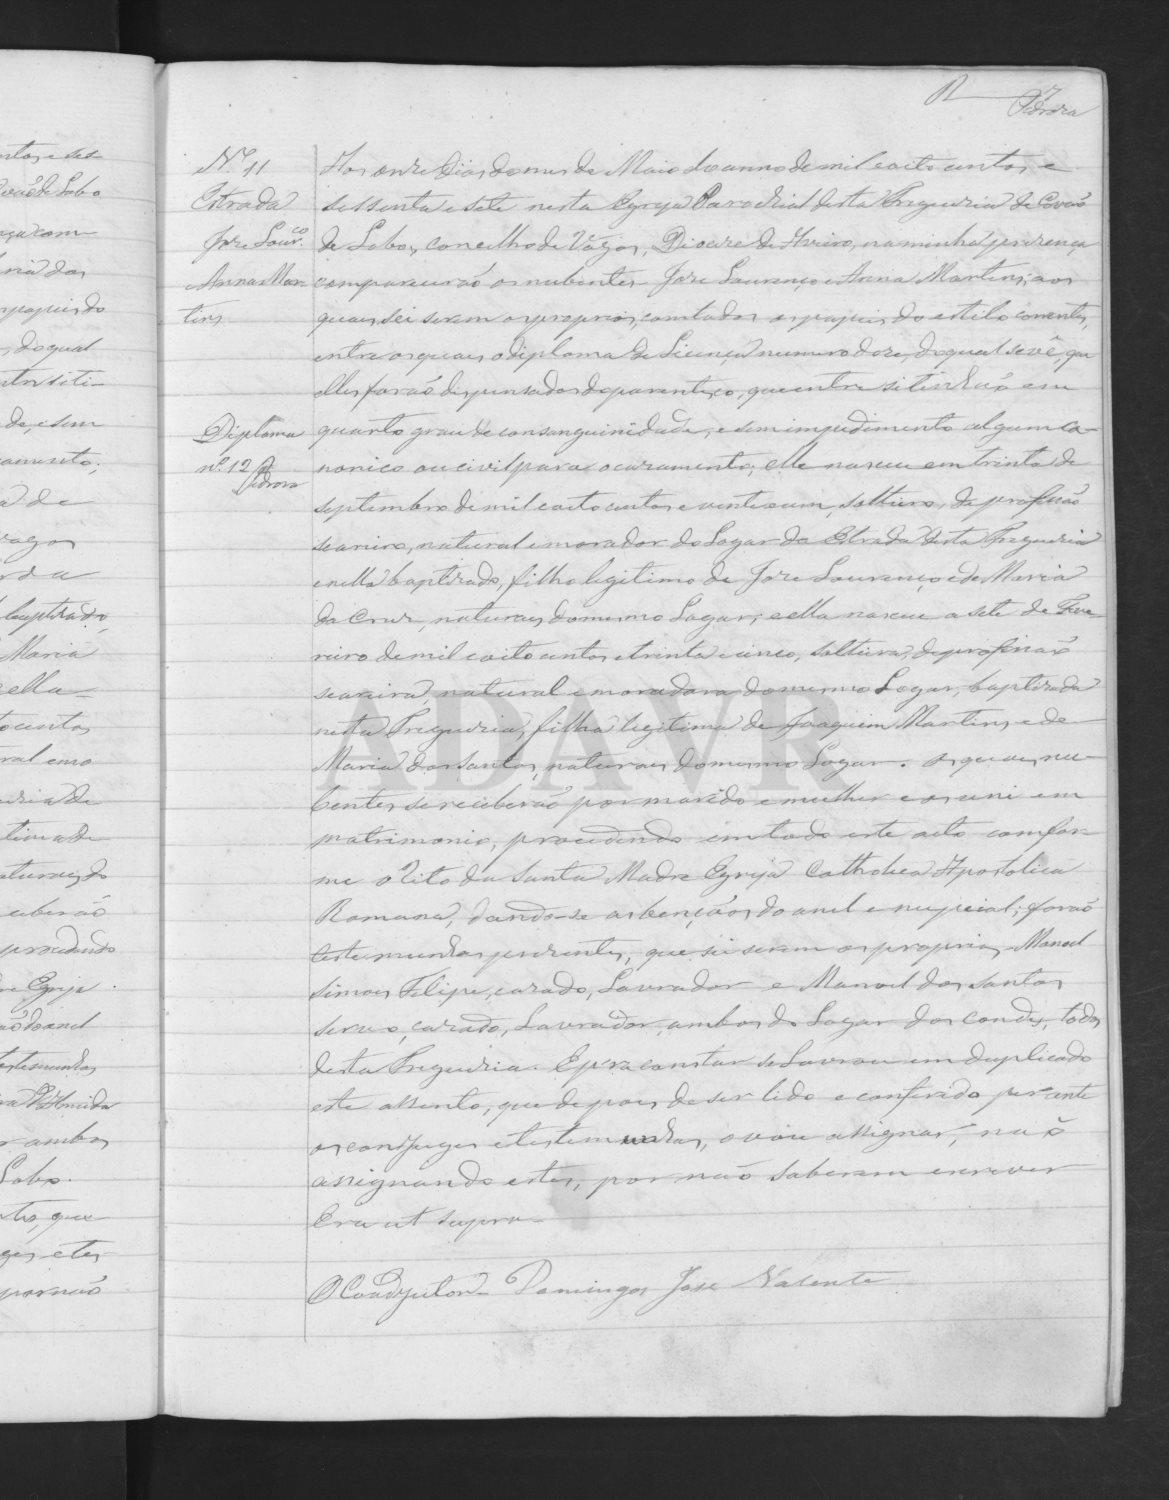 7
Nº 11
Estrada
Joze Lour.co
Anna Mar-
tins
Diploma
nº 12
Aos onze dias do mes de Maio do anno de mil e oito centos e
sessenta e sete nesta Egreja Parochial desta Freguezia de Covão
de Lobo, concelho de Vagos, Diocese de Aveiro, na minha prezença
comparecerão os nubentes Joze Lourenço e Anna Martins, aos
quaes sei serem os proprios, com todos os papeis do estilo correntes,
entre os quaes o diploma de Licença numero doze, do qual se vê, que
elles forão dispensados do parentesco, que entre si tinhão em
quarto grau de consanguinidade, e sem impedimento algum ca-
nonico ou civil para o cazamento; elle nasceu em trinta de
septembro de mil e oito centos e vinte e um, solteiro, de profissão
seareiro, natural e morador do Logar da Estrada desta Freguezia
e nella baptizado, filho legitimo de Joze Lourenço e de Maria
da Cruz, naturaes do mesmo Logar; e ella nasceu a sete de Feve-
reiro de mil e oito centos e trinta e cinco, solteira, de profissão
seareira, natural e moradora do mesmo Logar, baptizada
nesta Freguezia, filha legitima de Joaquim Martins e de
Maria dos Santos, naturaes do mesmo Logar. os quaes nu-
bentes se receberão por marido e mulher e os uni em
matrimonio, procedendo em todo este acto confor-
me o Rito da Santa Madre Egreja Catholica Apostolica
Romana, dando-se as benções do anel e nupcial; forão
testemunhas prezentes, que sei serem os proprios Manoel
Simoes Felipe, cazado, Lavrador e Manoel dos Santos
cazado, Lavrador, ambos do Logar dos Condes, todos
desta Freguezia. E para constar se Lavrou em duplicado
este assento, que depois de ser lido e conferido perante
os conjuges e testemunhas, o vou assignar, não
assignando estes, por não saberem escrever
Era ut supra
O Coadjutor Domingos Jose Valente
ADAVR